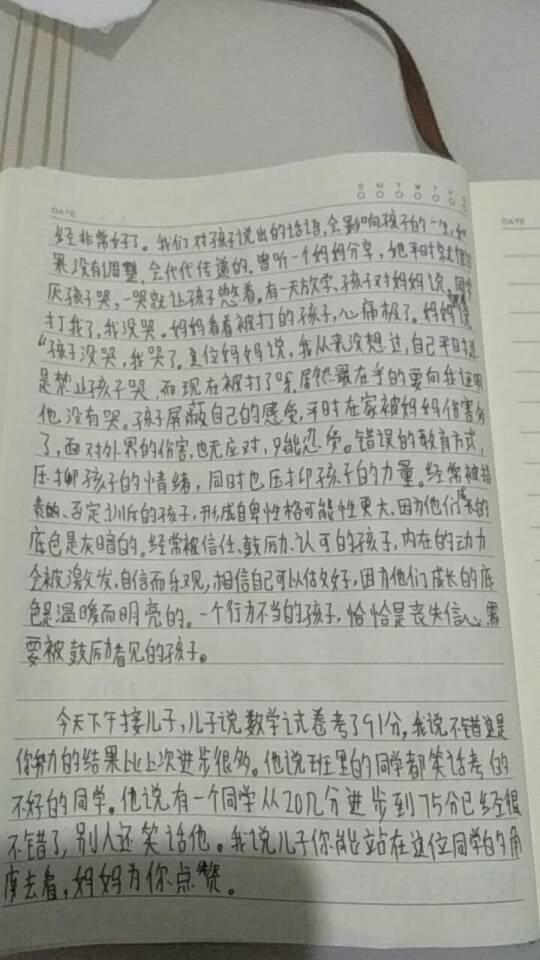 DATE
S M T W T F S
经非常好了。我们对孩子说出的话语,会影响孩子的一生,如
果没有调整,会代代传递的。曾听一个妈妈分享,他平时就
厌孩子哭,一哭就让孩子憋着。有一天放学,孩子对妈妈说,同学
打我了,我没哭。妈妈看着被打的孩子,心痛极了。妈妈说
“孩子没哭,我哭了。这位妈妈说,我从来没想过,自己平时总
是禁止孩子哭,而现在被打了呀,居然最在乎的要向我证明
他没有哭。孩子屏蔽自己的感受,平时在家被妈妈伤害够
了,面对外界的伤害,也无应对,只能忍受。错误的教育方式,
压抑孩子的情绪,同时也压抑孩子的力量。经常被指
责的、否定训斥的孩子,形成自卑性格可能性更大,因为他们成长的
底色是灰暗的。经常被信任、鼓励、认可的孩子,内在的动力
会被激发,自信而乐观,相信自己可以做好,因为他们成长的底
色是温暖而明亮的。一个行为不当的孩子,恰恰是丧失信心需
要被鼓励看见的孩子。
今天下午接儿子,儿子说数学试卷考了91分,我说不错这是
你努力的结果比上次进步很多。他说班里的同学都笑话考的
不好的同学。他说有一个同学从20几分进步到75分已经很
不错了,别人还笑话他。我说儿子你能站在这位同学的角
度去看,妈妈为你点赞。
DATE